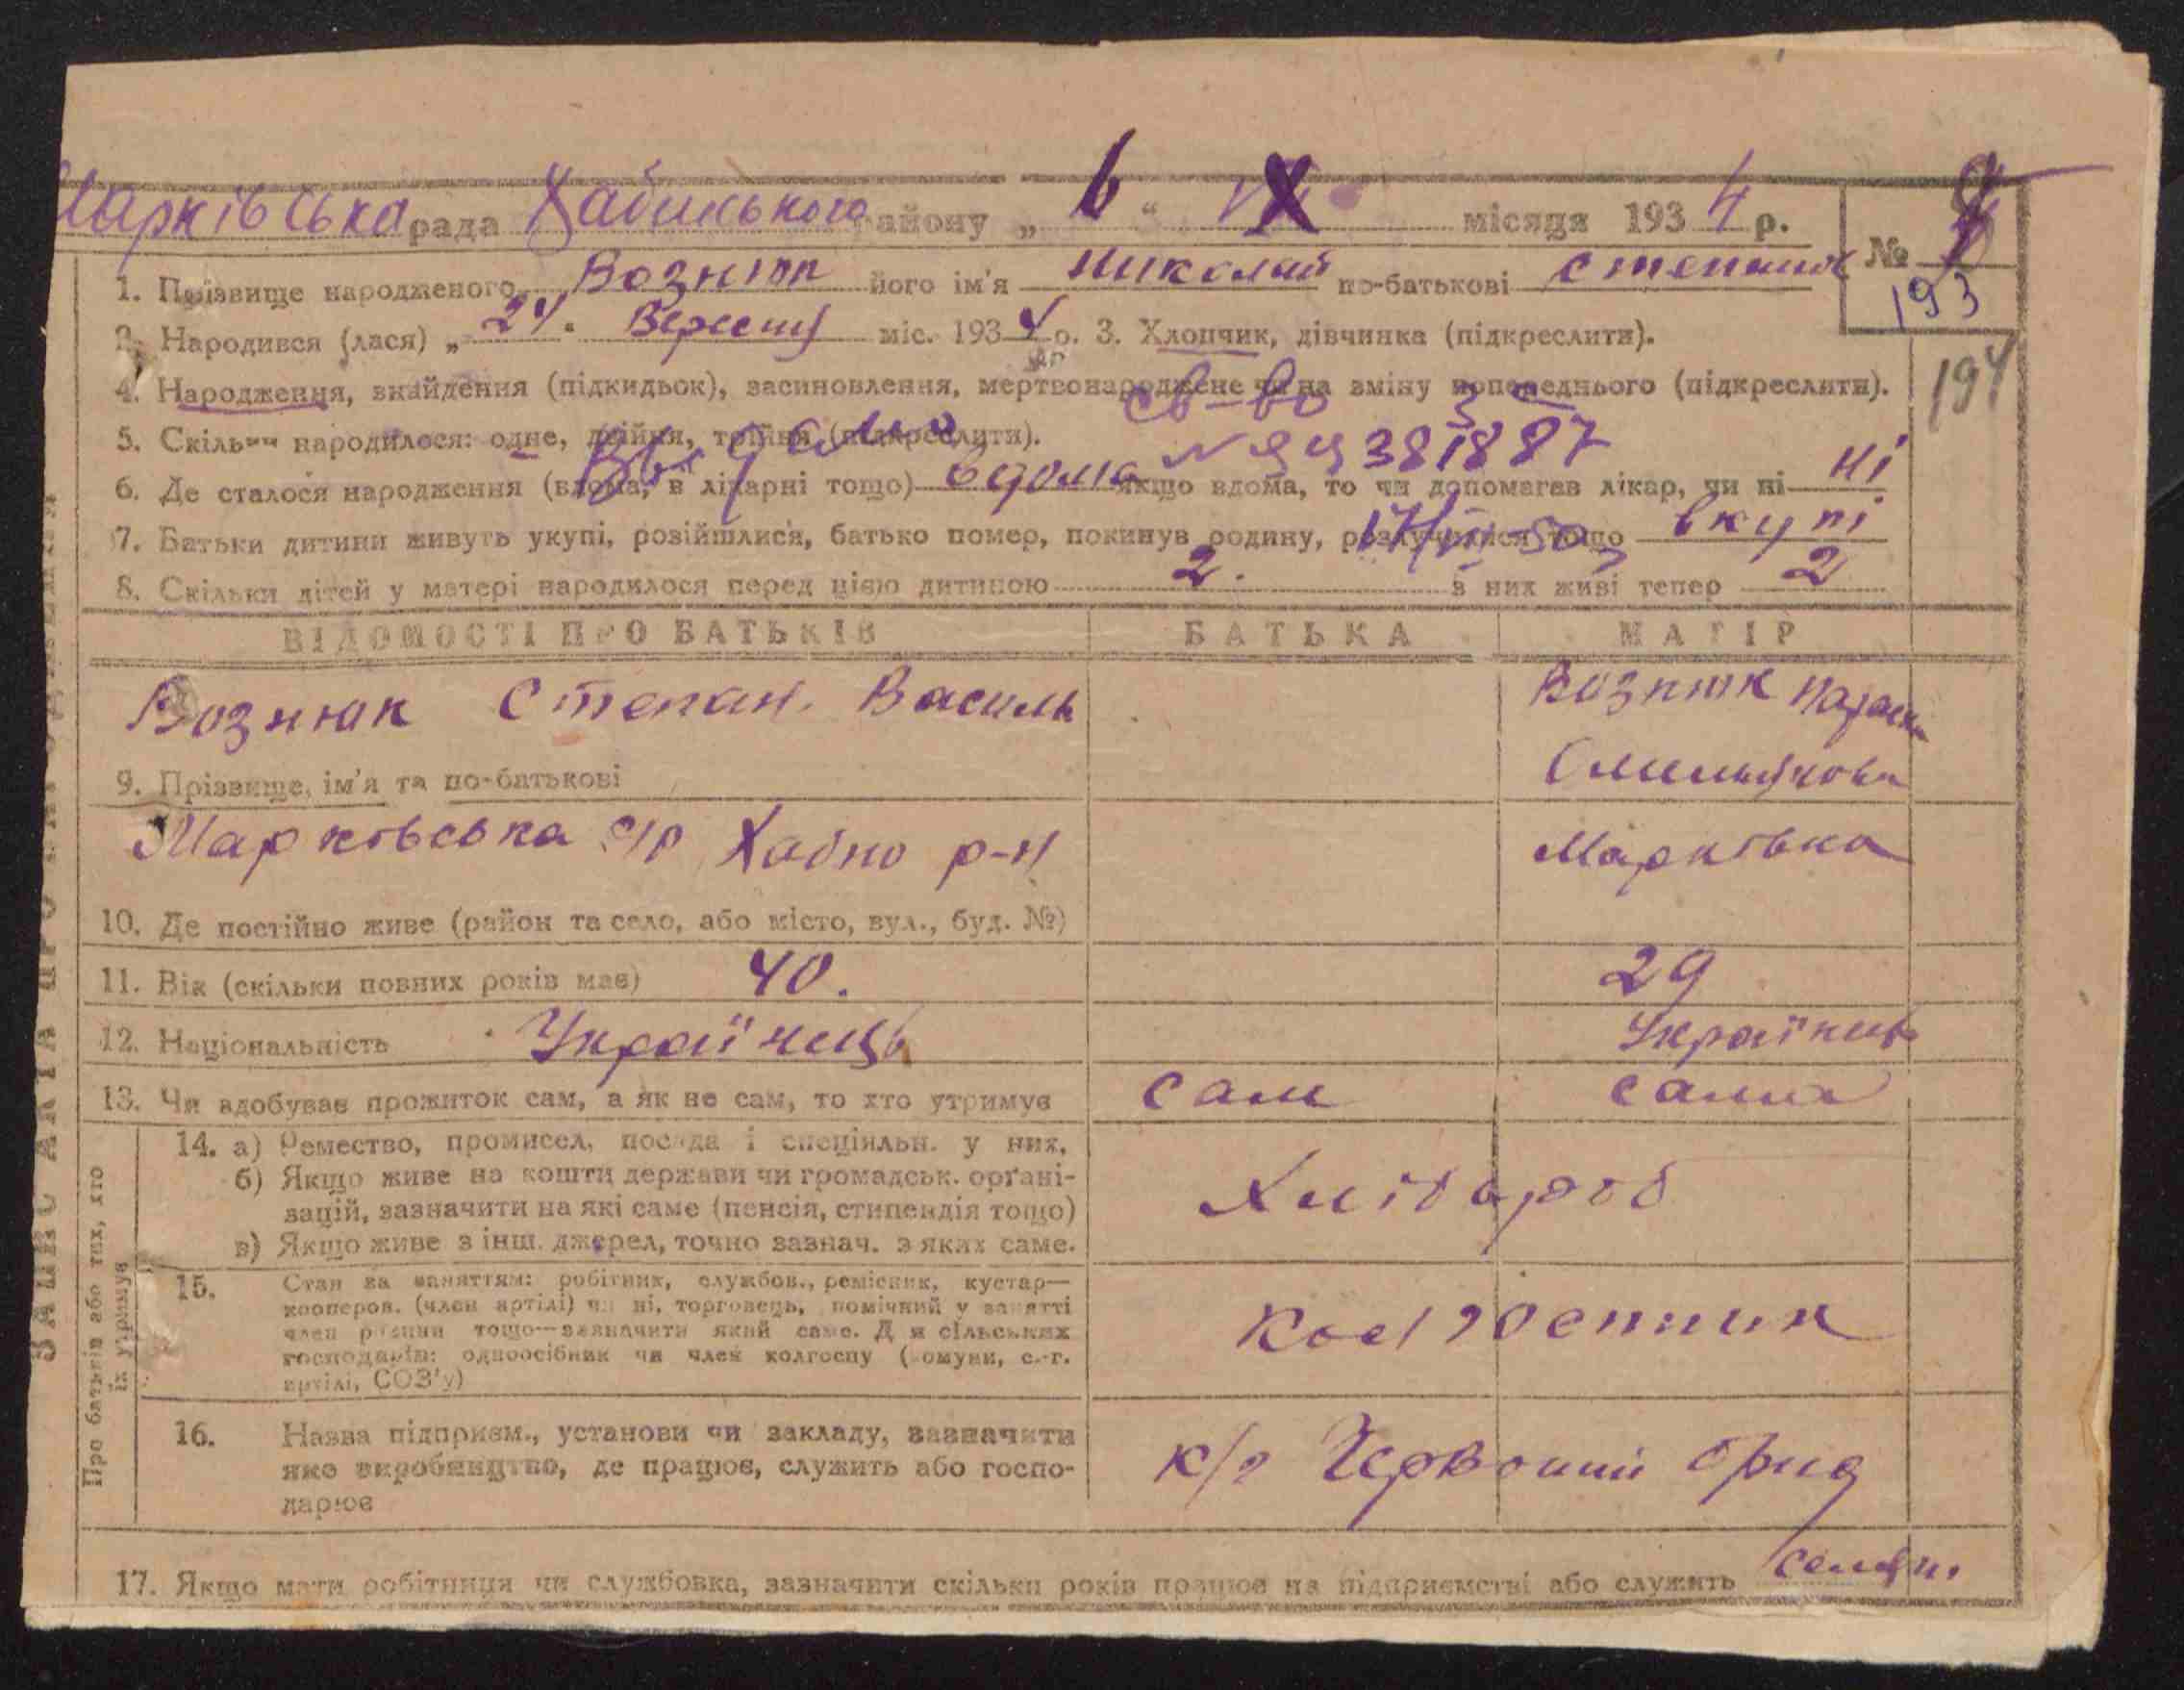 Марківська рада Хабенського району „ 6 “ X місяця 1934 р.
№ 193
194
1. Прізвище народженого Вознюк його ім'я Николай по-батькові Степанов
2. Народився (лася) „24“ Вересня міс. 1934 р. 3. Хлопчик, дівчинка (підкреслити).
4. Народження, знайдення (підкидьок), засиновлення, мертвонароджене чи на зміну попереднього (підкреслити).
5. Скільки народилося: одне, двійня, трійня (підкреслити).
Выдано св-во
№ 381887
6. Де сталося народження (вдома, в лікарні тощо) вдома якщо вдома, то чи допомагав лікар, чи ні ні
7. Батьки дитини живуть укупі, розійшлися, батько помер, покинув родину, розлучилися тощо вкупі
8. Скільки дітей у матері народилося перед цією дитиною 2. з них живі тепер 2
ВІДОМОСТІ ПРО БАТЬКІВ БАТЬКА МАТІР
Вознюк Степан. Василь Вознюк Параск
9. Прізвище, ім'я та по-батькові
Марковська с/р Хабно р-н Марківка
10. Де постійно живе (район та село, або місто, вул., буд. №)
11. Вік (скільки повних років має) 40. 29
12. Національність Українець Українць
13. Чи здобуває прожиток сам, а як не сам, то хто утримує сам сама
14. а) Ремество, промисел, посада і спеціяльн. у них,
б) Якщо живе на кошти держави чи громадськ. орґані-
зацій, зазначити на які саме (пенсія, стипендія тощо)
в) Якщо живе з інш. джерел, точно зазнач. з яких саме.
Хлібороб
15. Стан за заняттям: робітник, службов., ремісник, кустар—
кооперов. (член артілі) чи ні, торговець, помічний у занятті
член родини тощо—зазначити який саме. Для сільських
господарів: одноосібник чи член колгоспу (комуни, с.-г.
артілі, СОЗ'у)
колгоспник
16. Назва підприєм., установи чи закладу, зазначити
яке виробництво, де працює, служить або госпо-
дарює
к/г Червоний
17. Якщо мати робітниця чи службовка, зазначити скільки років працює на підприємстві або служить
ЗАПИС АКТА ПРО НАРОДЖЕННЯ
Про батьків або тих, хто
їх утримує